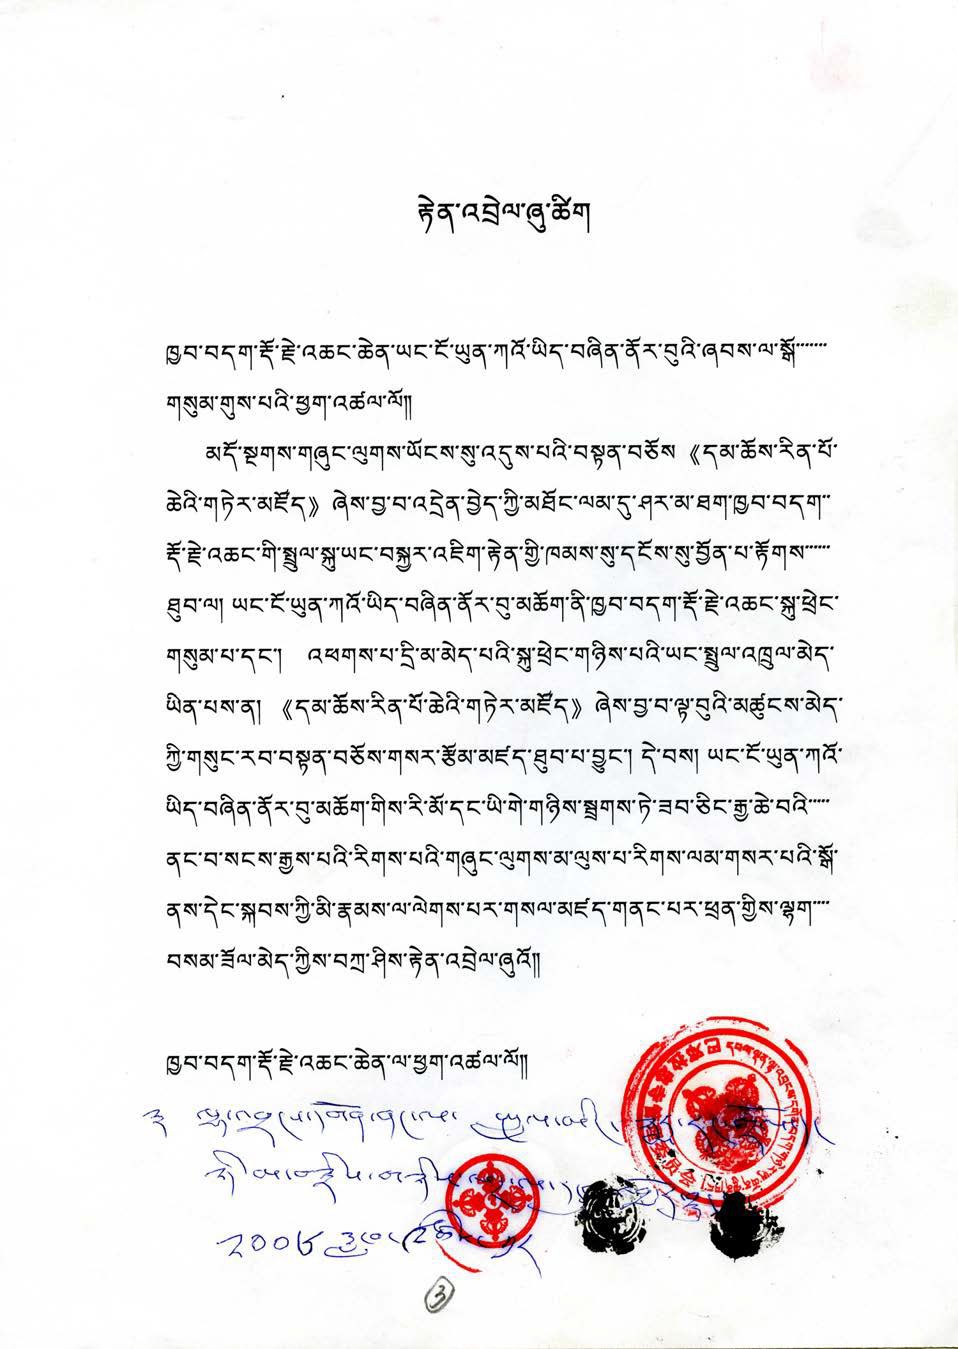 རྟེན་འབྲེལ་ཞུ་ཚིག
ཁྱབ་བདག་རྡོ་རྗེ་འཆང་ཆེན་ཡང་ངོ་ཡུན་ཀའོ་ཡིད་བཞིན་ནོར་བུའི་ཞབས་ལ་སྒོ་······
གསུམ་གུས་པའི་ཕྱག་འཚལ་ལོ།།
མདོ་སྔགས་གཞུང་ལུགས་ཡོངས་སུ་འདུས་པའི་བསྟན་བཅོས《དམ་ཆོས་རིན་པོ་
ཆེའི་གཏེར་མཛོད》ཞེས་བྱ་བ་འདྲེན་བྱེད་ཀྱི་མཐོང་ལམ་དུ་ཤར་མ་ཐག་ཁྱབ་བདག་··
རྡོ་རྗེ་འཆང་གི་སྤྲུལ་སྐུ་ཡང་བསྐྱར་འཇིག་རྟེན་གྱི་ཁམས་སུ་དངོས་སུ་བྱོན་པ་རྟོགས་·····
ཐུབ་ལ། ཡང་ངོ་ཡུན་ཀའོ་ཡིད་བཞིན་ནོར་བུ་མཆོག་ནི་ཁྱབ་བདག་རྡོ་རྗེ་འཆང་སྐུ་ཕྲེང་
གསུམ་པ་དང་། འཕགས་པ་དྲི་མ་མེད་པའི་སྐུ་ཕྲེང་གཉིས་པའི་ཡང་སྤྲུལ་འཁྲུལ་མེད་
ཡིན་པས་ན། 《དམ་ཆོས་རིན་པོ་ཆེའི་གཏེར་མཛོད》ཞེས་བྱ་བ་ལྟ་བུའི་མཚུངས་མེད་
ཀྱི་གསུང་རབ་བསྟན་བཅོས་གསར་རྩོམ་མཛད་ཐུབ་པ་བྱུང་། དེ་བས། ཡང་ངོ་ཡུན་ཀའོ་
ཡིད་བཞིན་ནོར་བུ་མཆོག་གིས་རི་མོ་དང་ཡི་གེ་གཉིས་སྦྲགས་ཏེ་ཟབ་ཅིང་རྒྱ་ཆེ་བའི་····
ནང་བ་སངས་རྒྱས་པའི་རིགས་པའི་གཞུང་ལུགས་མ་ལུས་པ་རིགས་ལམ་གསར་པའི་སྒོ་
ནས་དེང་སྐབས་ཀྱི་མི་རྣམས་ལ་ལེགས་པར་གསལ་མཛད་གནང་པར་ཕྲན་གྱིས་ལྷག་···
བསམ་ཟོལ་མེད་ཀྱིས་བཀྲ་ཤིས་རྟེན་འབྲེལ་ཞུའོ།།
ཁྱབ་བདག་རྡོ་རྗེ་འཆང་ཆེན་ལ་ཕྱག་འཚལ་ལོ།།
3